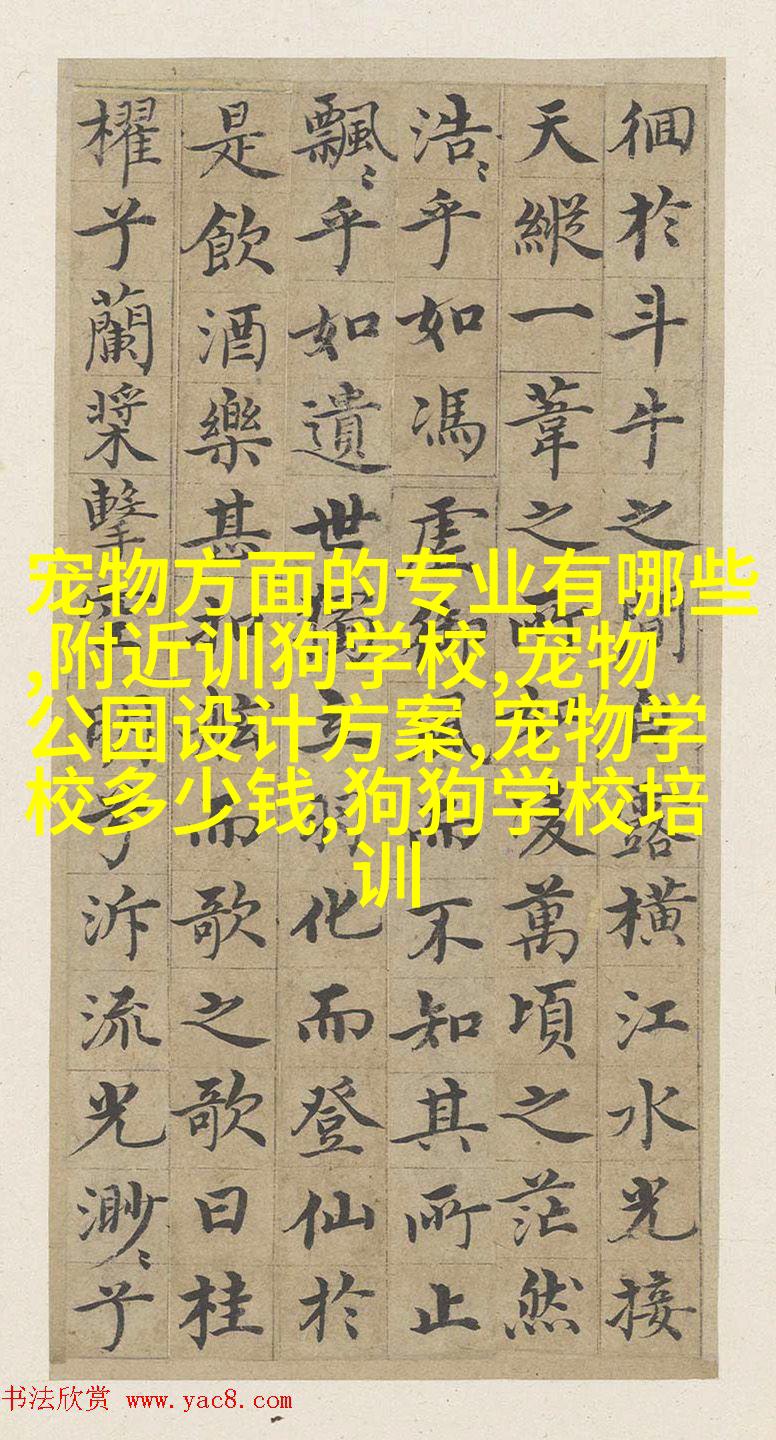 徊於斗牛之間白露橫江水光接
天縱一葦之所如凌萬頃之茫然
浩〻乎如馮虛御風而不知其所止
飄〻乎如遺世獨立羽化而登仙於
是飲酒樂甚扣舷而歌之歌曰桂
櫂兮蘭槳擊空明兮泝流光渺〻兮
宠物方面的专业有哪些
,附近训狗学校,宠物
公园设计方案,宠物学
校多少钱,狗狗学校培
训
书法欣赏 www.yac8.com